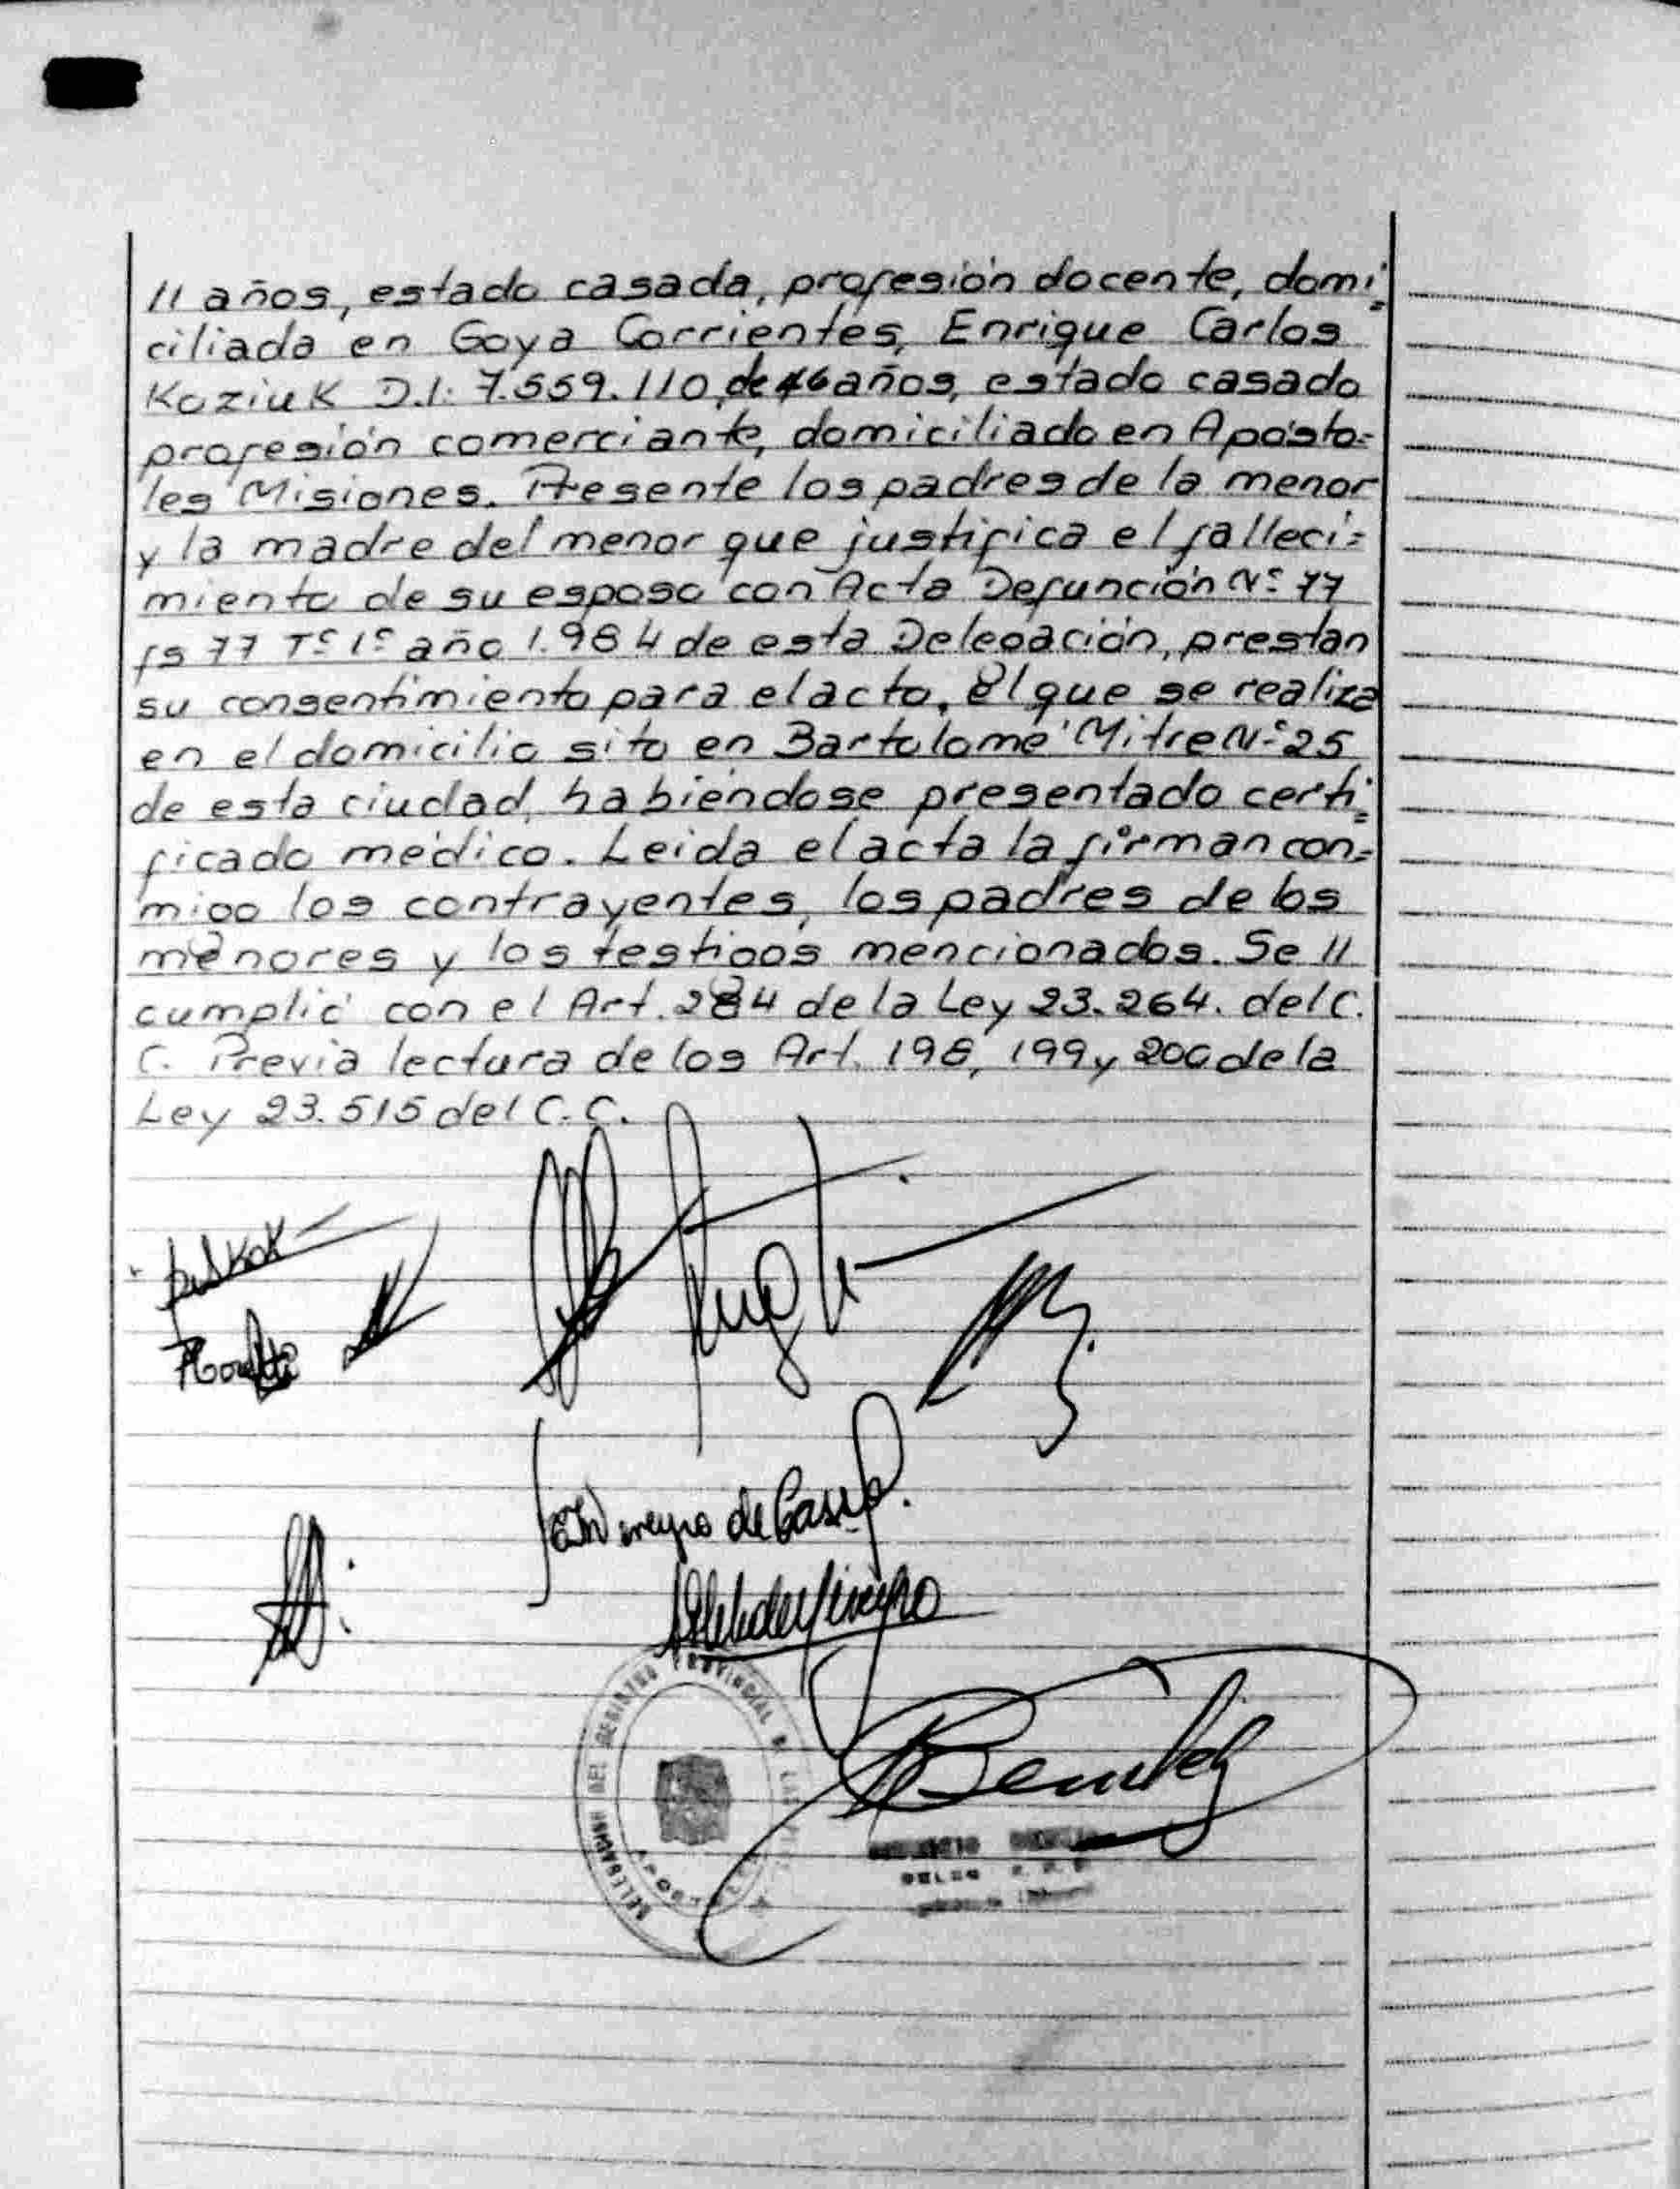 11 años, estado casada, profesión docente, domi=
ciliada en Goya Corrientes, Enrique Carlos
Koziuk D.I: 7.559.110, de 46 años, estado casado
profesión comerciante, domiciliado en Apósto=
les Misiones. Presente los padres de la menor
y la madre del menor que justifica el falleci=
miento de su esposo con Acta Defunción Nº 77
fs 77 Tº 1º año 1.984 de esta Delegación, prestan
su consentimiento para el acto, el que se realiza
en el domicilio sito en Bartolomé Mitre Nº 25
de esta ciudad, habiéndose presentado certi=
ficado médico. Leida el acta la firman con=
migo los contrayentes, los padres de los
menores y los testigos mencionados. Se 11
cumplió con el Art. 284 de la Ley 23.264. del C.
C. Previa lectura de los Art. 198, 199 y 200 de la
Ley 23.515 del C.C.
de Casep.
DELEGACION DEL REGISTRO PROVINCIAL DE LAS
Benitez